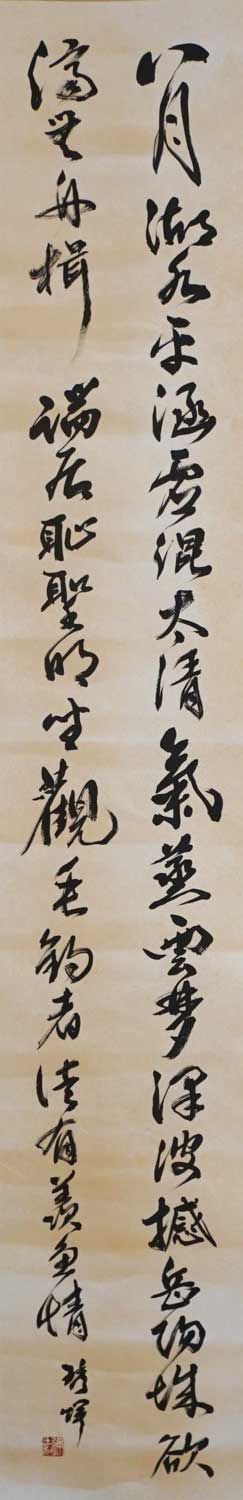 八月湖水平涵虛混太清氣蒸雲梦澤波撼岳陽城欲
濟無舟楫端居恥聖明坐觀垂釣者徒有羨魚情